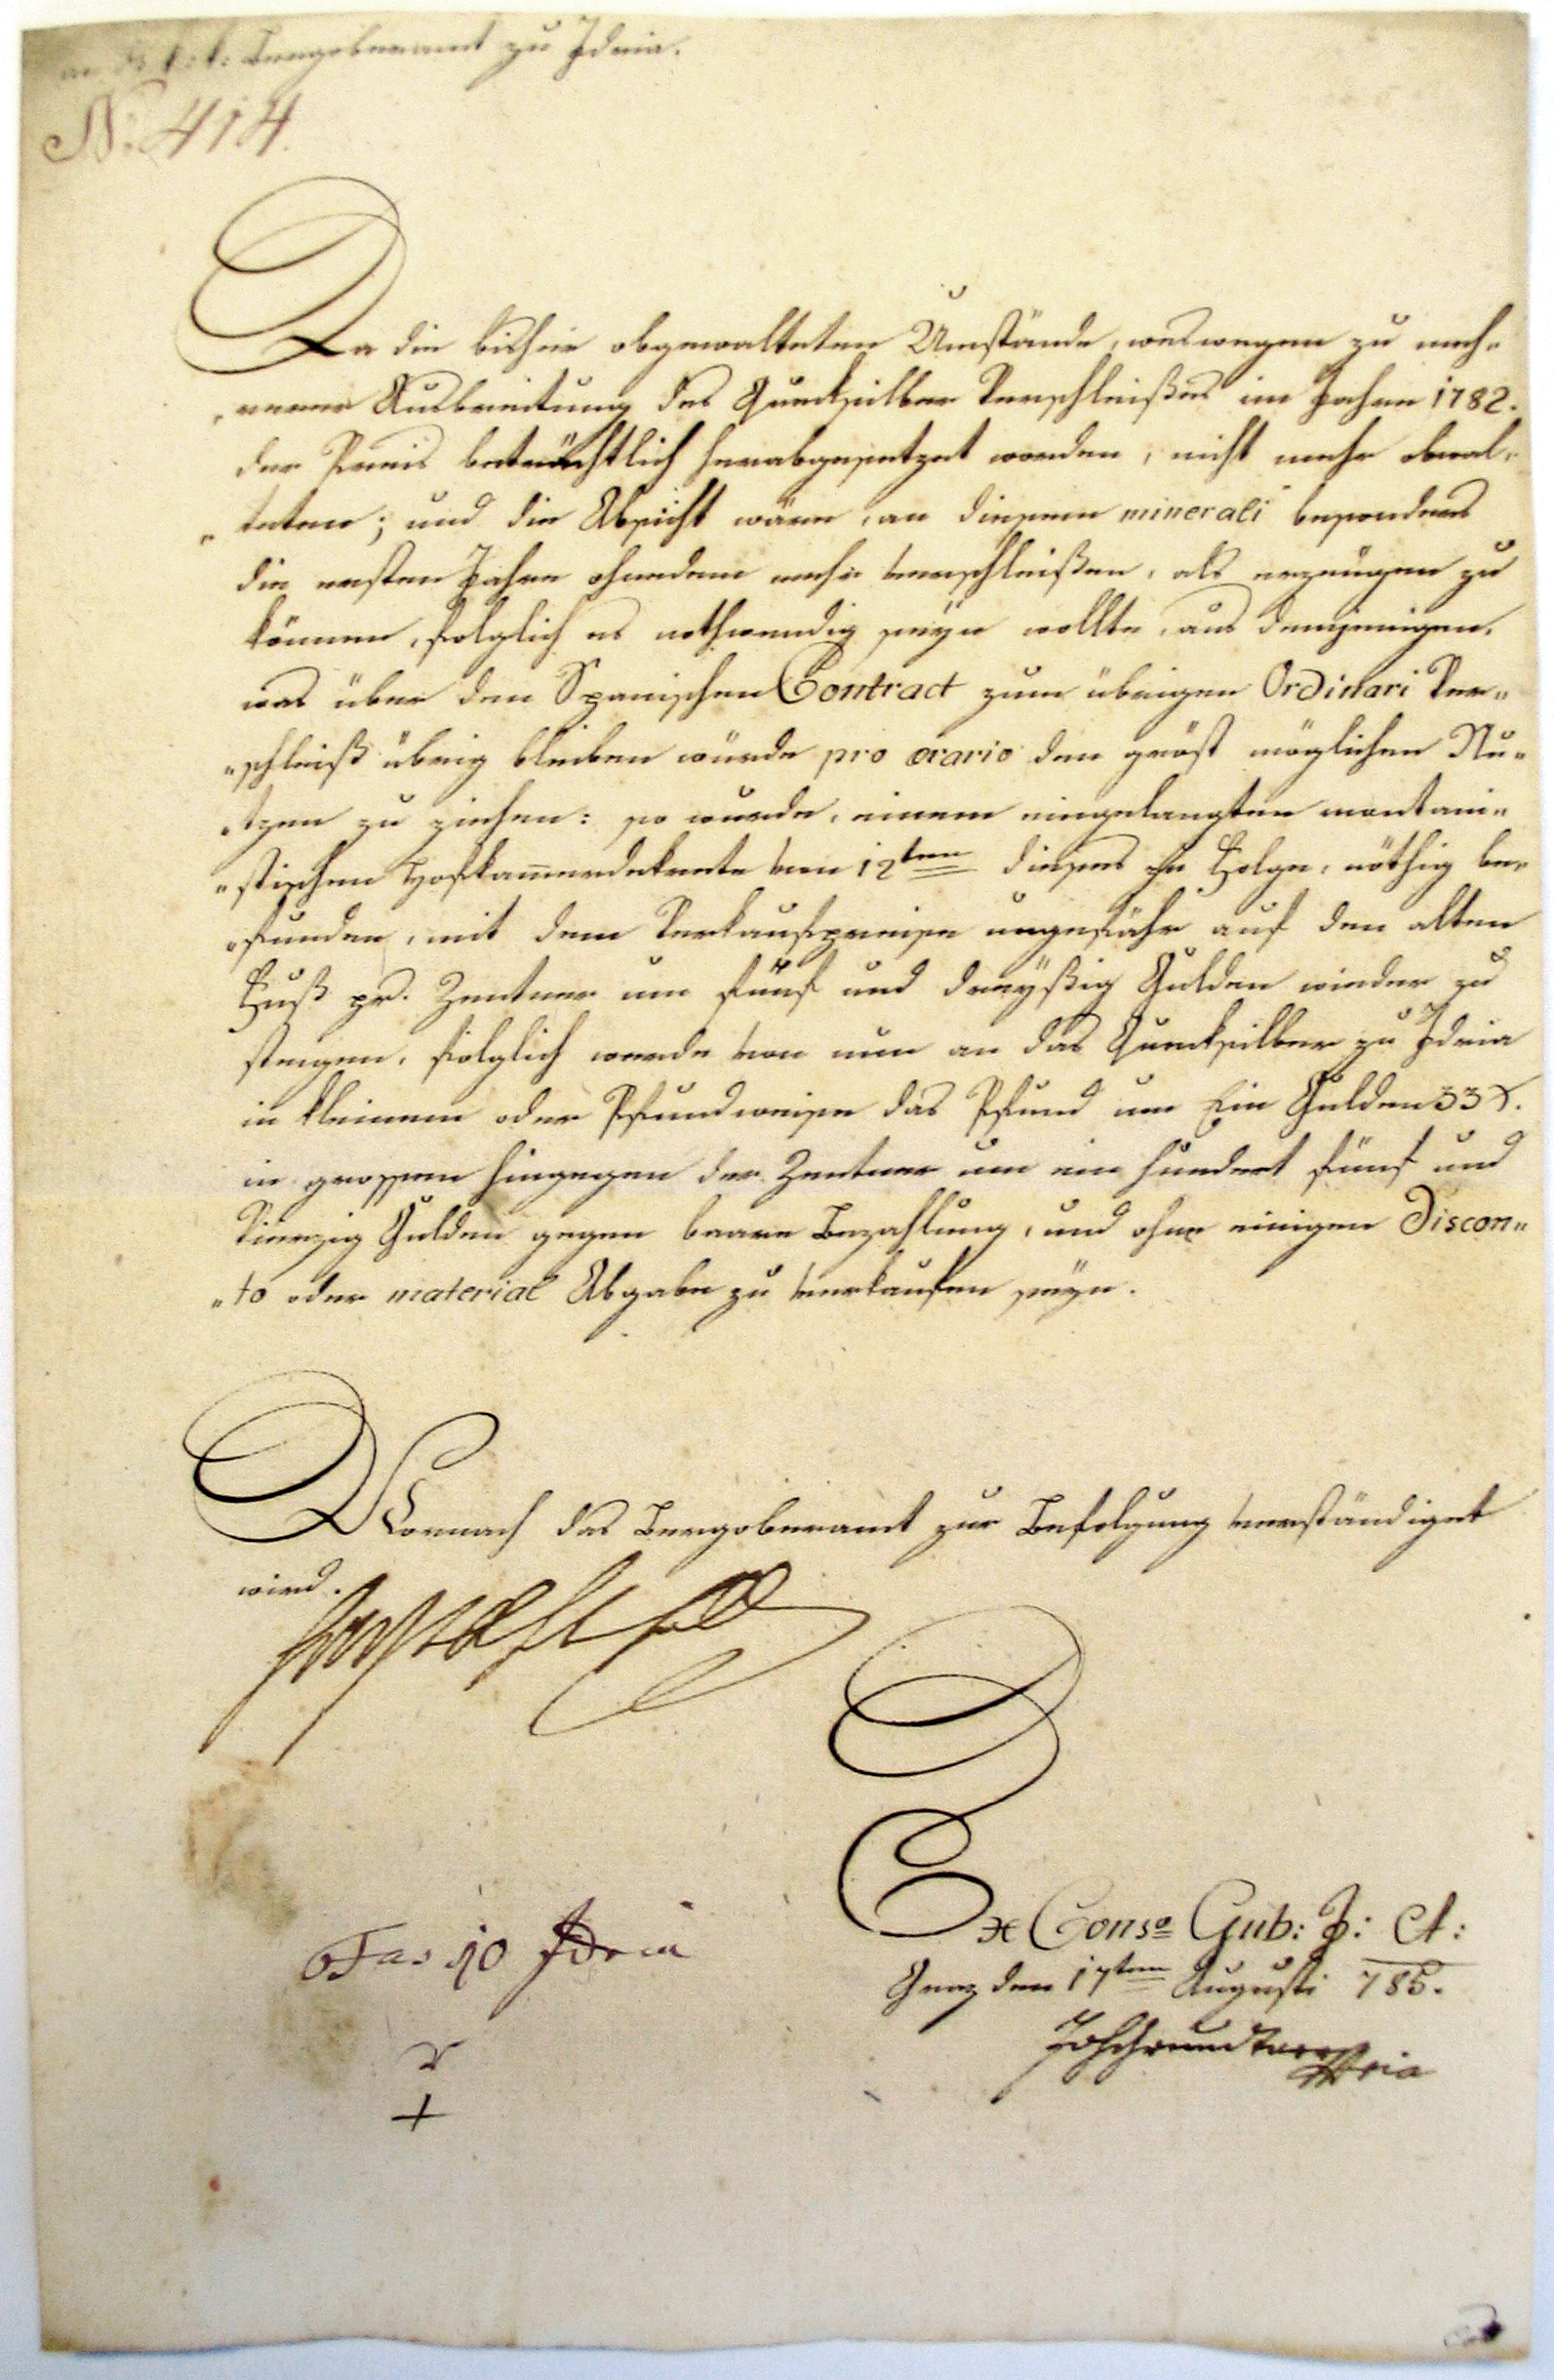 an das k: k: Bergoberamt zu Idria.
N: 414.
Da die bisher obgewalteten Umstände, weswegen zu meh„
„rerer Ausbreitung des Quecksilber Verschleißes im Jahre 1782.
der Preis beträchtlich herabgesetzet worden, nicht mehr obwal„
„teten; und die Absicht wäre, an diesem minerali besonders
die ersten Jahre ohnedem mehr verschleißen, als erzeugen zu
können, folglich es nothwendig seyn wollte, aus demjenigen,
was über den Spanischen Contract zum übrigen Ordinari Ver„
„schleiß übrig bleiben würde pro ærario den gröst möglichen Nu„
„tzen zu ziehen: so wurde, einem eingelangten montani„
„stischen Hofkam̅erdekrete von 12ten dieses zu Folge, nöthig be„
„funden, mit dem Verkaufspreise ungefähr auf den alten
Fuß pr. Zentner um fünf und dreyßig Gulden wieder zu
steigen, folglich werde von nun an das Quecksilber zu Idria
in kleinem oder Pfundweise das Pfund um Ein Gulden 33 x.
in grossem hingegen der Zentner um ein hundert fünf und
Vierzig Gulden gegen baare Bezahlung, und ohne einigen Discon„
„to oder material Abgabe zu verkaufen seyn.
Wornach das Bergoberamt zur Befolgung verständiget
wird.
Ex Conso Gub: I: A:
Graz den 17ten Augusti 785.
Fas 10 Idria